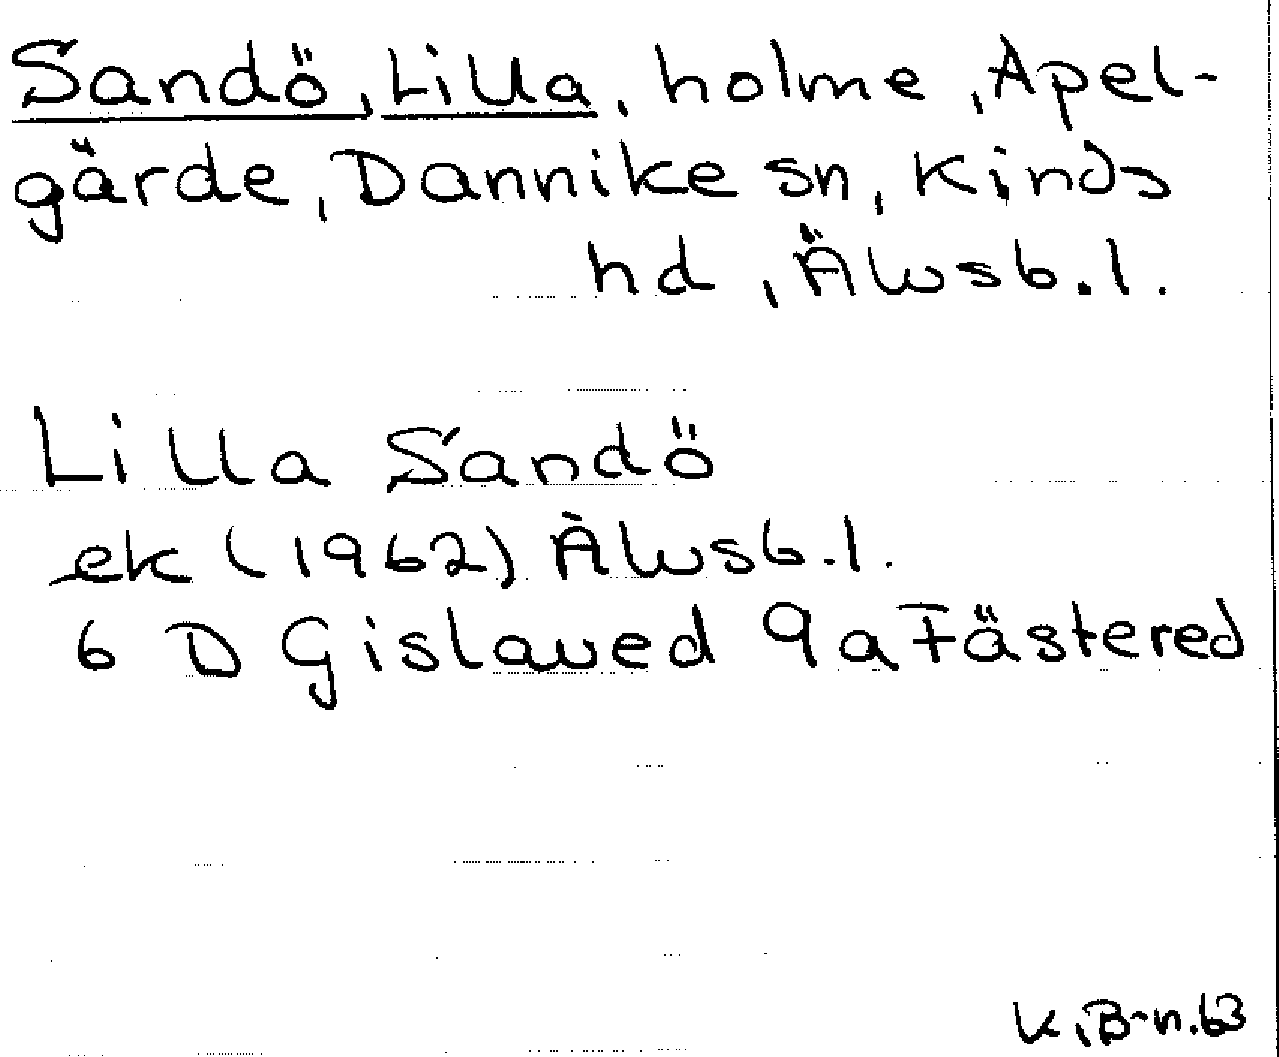 Sandö, Lilla, holme, Apel-
gärde, Dannike sn, Kinds
hd, Älvsb.l.
Lilla Sandö
ek (1962) Älvsb.l.
6 D Gislaved 9a Fästered
K.B-n.63